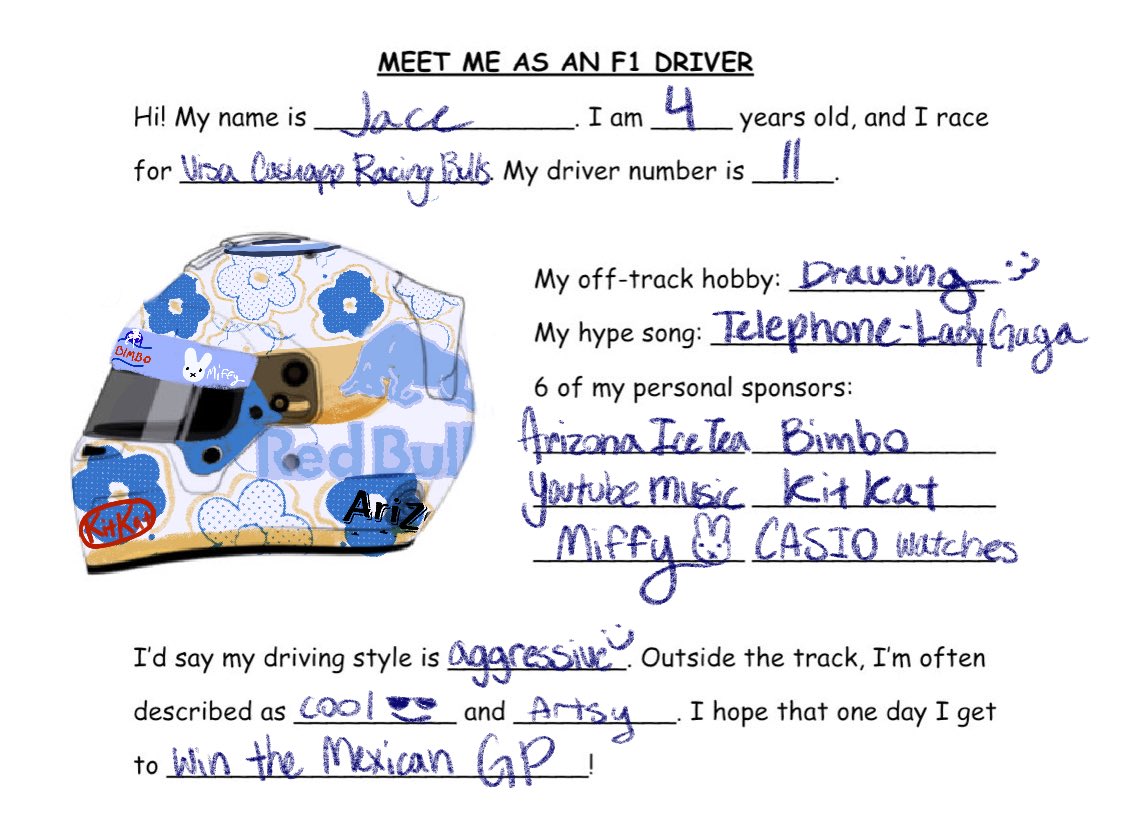 MEET ME AS AN F1 DRIVER
Hi! My name is Jace. I am 4 years old, and I race
for Visa Cashapp Racing Bulls. My driver number is 11.
My off-track hobby: Drawing
My hype song: Telephone-Lady Gaga
6 of my personal sponsors:
Arizona Ice Tea Bimbo
Youtube Music Kit Kat
Miffy CASIO watches
BIMBO
Miffy
Red Bull
KitKat
AriZ
I'd say my driving style is aggressive. Outside the track, I'm often
described as cool and Artsy. I hope that one day I get
to win the Mexican GP!